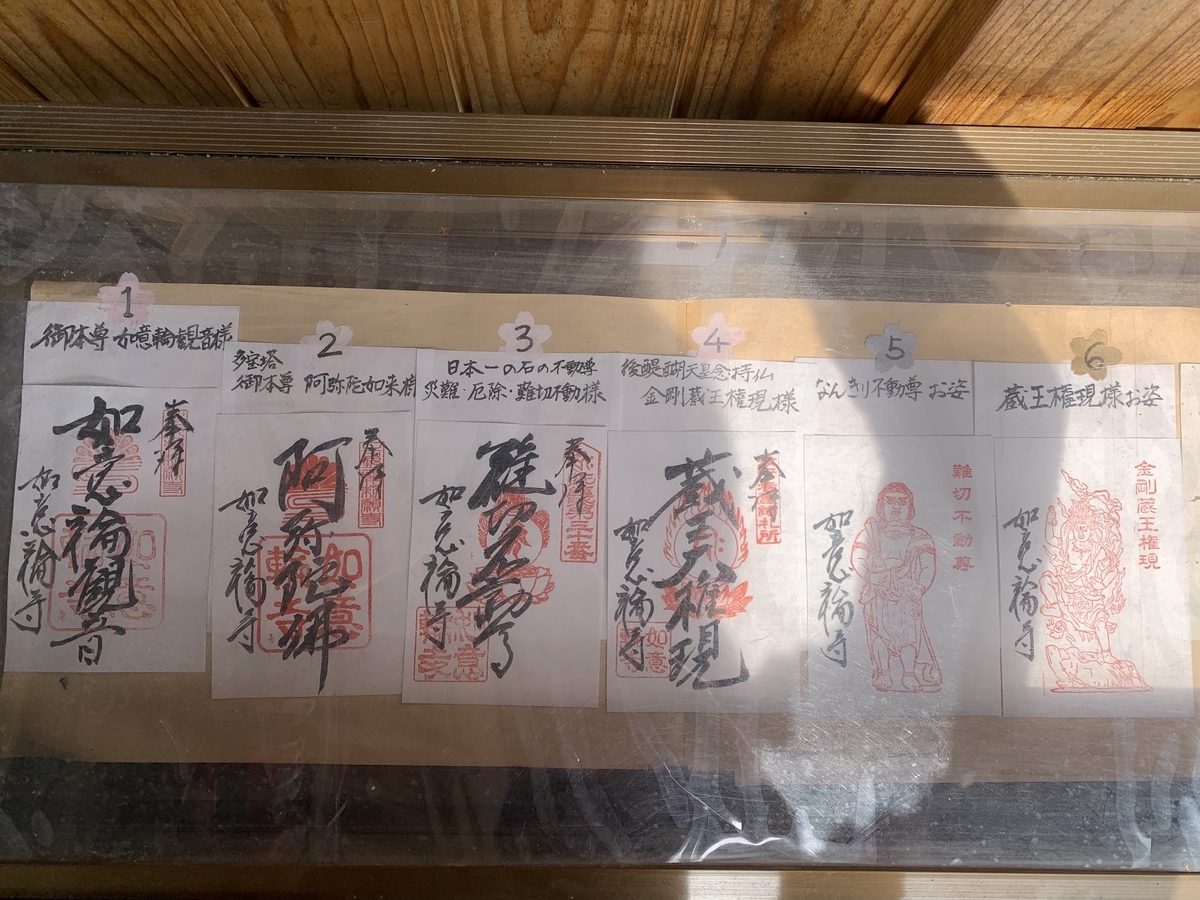 1
御本尊 如意輪観音様
奉拝
如意輪観音
如意輪寺
2
多宝塔
御本尊 阿弥陀如来様
奉拝
阿弥陀佛
如意輪寺
3
日本一の石の不動尊
災難・厄除・難切不動様
奉拝
難切不動尊
如意輪寺
4
後醍醐天皇念持仏
金剛蔵王権現様
奉拝
蔵王権現
如意輪寺
5
なんきり不動尊お姿
難切不動尊
如意輪寺
6
蔵王権現様お姿
金剛蔵王権現
如意輪寺